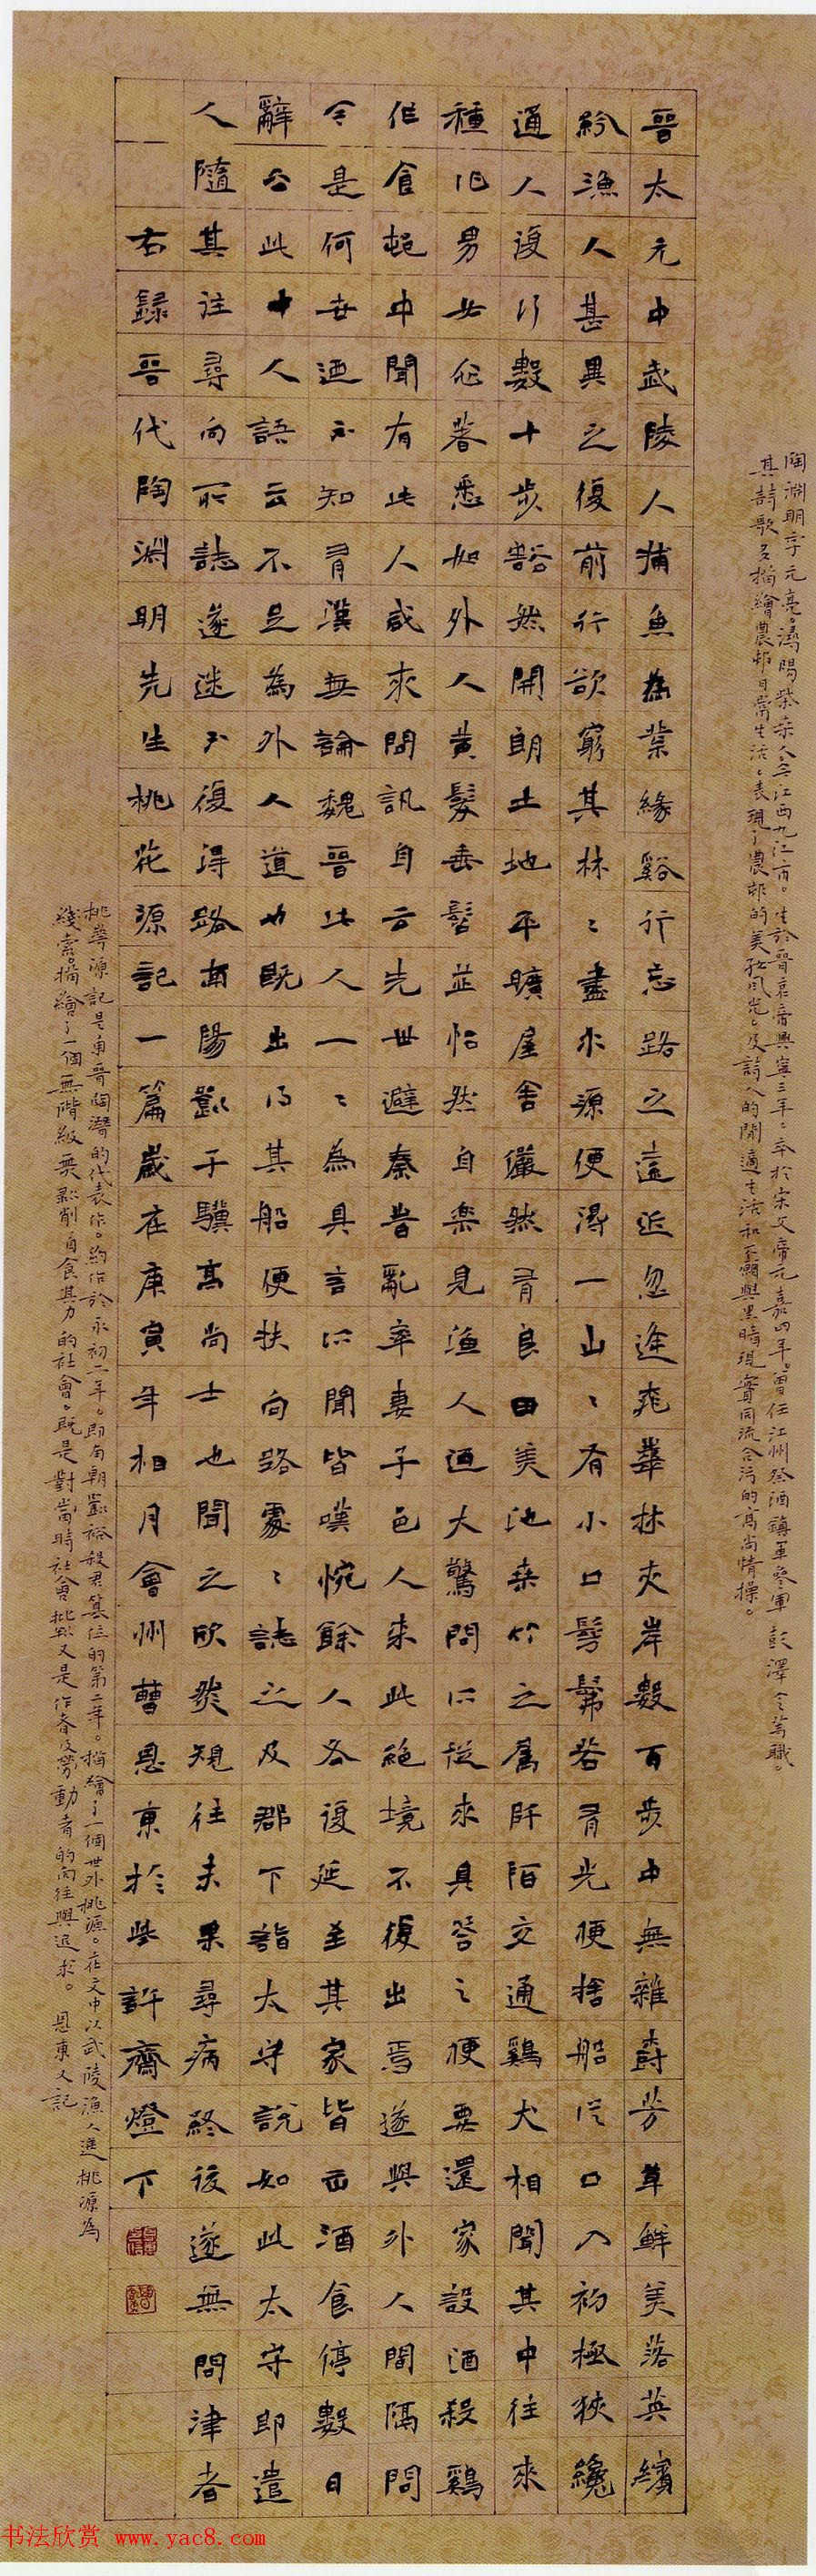 陶淵明字元亮。潯陽柴桑人今江西九江市。生於晉哀帝興寧三年、卒於宋文帝元嘉四年。曾任江州祭酒鎮軍參軍彭澤令等職。
其詩歌多描繪農邨日常生活、表現了農邨的美好風光、及詩人的閒適生活和不願與黑暗現實同流合污的高尚情操。
晉太元中武陵人捕魚為業緣谿行忘路之遠近忽逢桃華林夾岸數百步中無雜樹芳草鮮美落英繽
紛漁人甚異之復前行欲窮其林〻盡水源便得一山〻有小口髣髴若有光便捨船從口入初極狹纔
通人復行數十步豁然開朗土地平曠屋舍儼然有良田美池桑竹之屬阡陌交通鷄犬相聞其中往來
種作男女衣著悉如外人黃髮垂髫並怡然自樂見漁人迺大驚問所從來具答之便要還家設酒殺鷄
作食邨中聞有此人咸來問訊自云先世避秦昔亂率妻子邑人來此絕境不復出焉遂與外人間隔問
今是何世迺不知有漢無論魏晉此人一〻為具言所聞皆嘆惋餘人各復延至其家皆出酒食停數日
辭去此中人語云不足為外人道也既出得其船便扶向路處〻誌之及郡下詣太守說如此太守即遣
人隨其往尋向所誌遂迷不復得路南陽劉子驥高尚士也聞之欣然規往未果尋病終後遂無問津者
右錄晉代陶淵明先生桃花源記一篇歲在庚寅年相月會州曹恩東於些許齋燈下
桃華源記是東晉陶潛的代表作。約作於永初二年。即南朝劉裕殺君篡位的第二年。描繪了一個世外桃源。在文中以武陵漁人進桃源為
綫索。描繪了一個無階級無剝削自食其力的社會。既是對當時社會批判又是作者及勞動者的向往與追求。恩東又記
书法欣赏 www.yac8.com